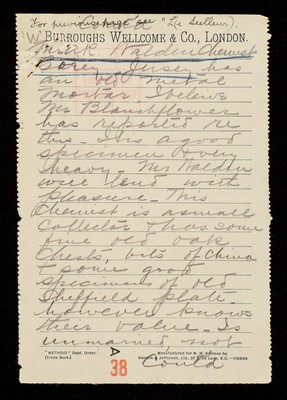 For previous page see "Le Sueller).
BURROUGHS WELLCOME & CO., LONDON.
Mark Walden Chemist
Gorey Jersey has
an old metal
mortar I believe
Mr Blanchflower
has reported re
this – It is a good
specimen & very
heavy – Mr Walden
will lend with
pleasure – This
Chemist is a small
collector & has some
fine old oak
Chests, bits of China
& some good
specimens of old
Sheffield plate
however knows
their value – Is
unmarried, not
"METHOD" Dept. Order.
(Trade Mark.)
Manufactured for W. H.
& Jefferson, Ltd., E.C.
A
38
Could